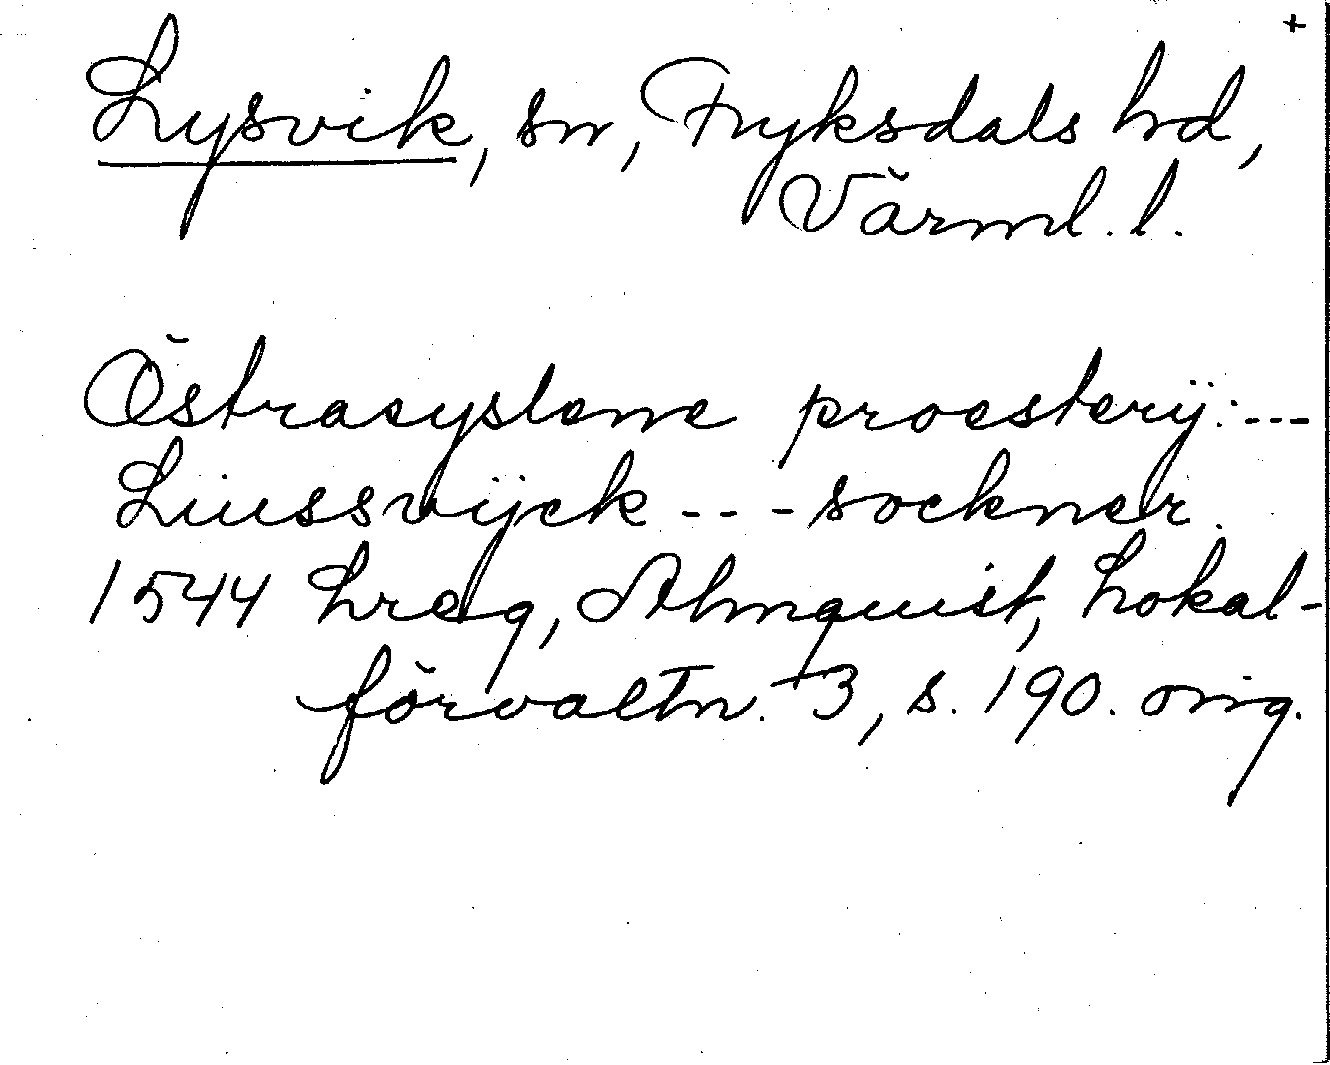 +
Lysvik, sn, Fryksdals hd,
Värml. l.
Östrasyslenne proestery̎: ---
Liussvÿck --- sockner.
1544 Lreg, Almquist, Lokal-
förvaltn. 3, s. 190. orig.